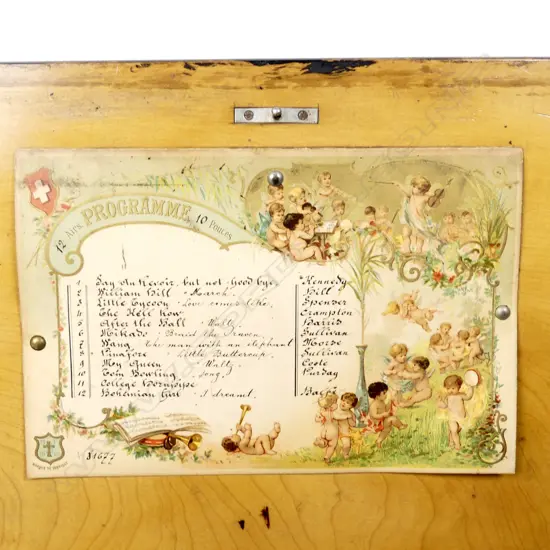 12 Airs. PROGRAMME 10 Pouces
1 Say Au Revoir, but not good bye Kennedy
2 William Bill · March Hill
3 Little Tycoon · Love comes like Spenser
4 The Kell Row Crampton
5 After the Ball · Waltz Harris
6 Mikado · Braid the Raven Sullivan
7 Wang the man with an elephant Morse
8 Pinafore · Little Buttercup Sullivan
9 My Queen · Waltz Coote
10 Tom Bowling · Song
11 College Hornpipe
12 Bohemian Girl · I dreamt Balfe
31677